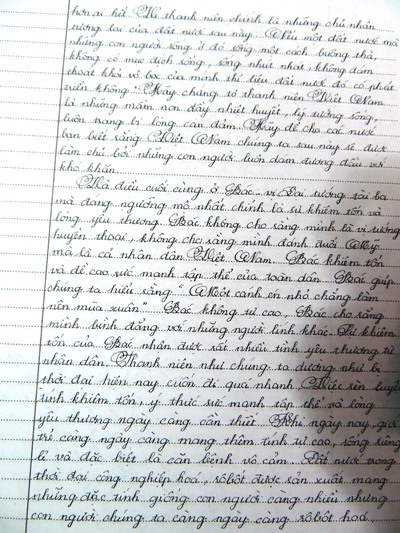 hơn ai hết. Vì thanh niên chính là những chủ nhân
tương lai của đất nước sau này. Nếu một đất nước mà
những con người sống ở đó sống một cách buông thả,
không có mục đích sống, sống nhút nhát, không dám
thoát khỏi vỏ bọc của mình thì liệu đất nước đó có phát
triển không? Hãy chứng tỏ thanh niên Việt Nam
là những mầm non đầy nhiệt huyết, lý tưởng sống,
luôn trang bị lòng can đảm. Hãy để cho các nước
bạn biết rằng Việt Nam chúng ta sau này sẽ được
làm chủ bởi những con người luôn dám đương đầu với
khó khăn.
Và điều cuối cùng ở Bác - vị Đại tướng tài ba
mà đáng ngưỡng mộ nhất chính là sự khiêm tốn và
lòng yêu thương. Bác không cho rằng mình là vị tướng
huyền thoại, không cho rằng mình đánh đuổi Mỹ
mà là cả nhân dân Việt Nam. Bác khiêm tốn
và đề cao sức mạnh tập thể của toàn dân. Bác giúp
chúng ta hiểu rằng "Một cánh én nhỏ chẳng làm
nên mùa xuân". Bác không tự cao, Bác cho rằng
mình bình đẳng với những người lính khác. Sự khiêm
tốn của Bác nhận được rất nhiều tình yêu thương từ
nhân dân. Thanh niên như chúng ta dường như bị
thời đại hiện nay cuốn đi quá nhanh. Việc rèn luyện
tính khiêm tốn, ý thức sức mạnh tập thể và lòng
yêu thương ngày càng cần thiết. Khi ngày nay, giới
trẻ càng ngày càng mang thêm tính tự cao, sống riêng
lẻ và đặc biệt là căn bệnh vô cảm. Đất nước trong
thời đại công nghiệp hoá, rôbốt được sản xuất mang
những đặc tính giống con người càng nhiều nhưng
con người chúng ta càng ngày càng rôbốt hoá,